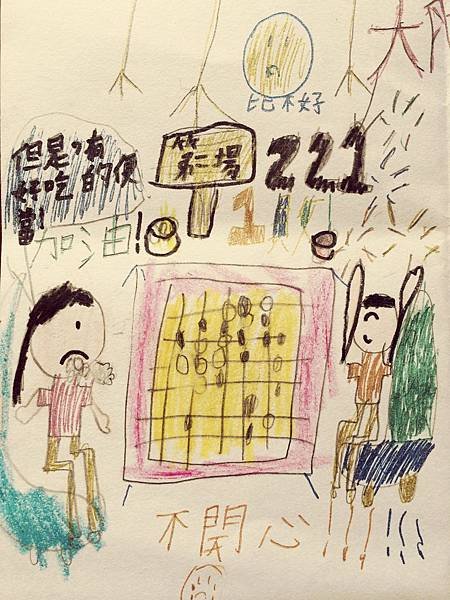 大
比不好
但是,有
好吃的便
當!
第二場
221
加油!
不開心!!!